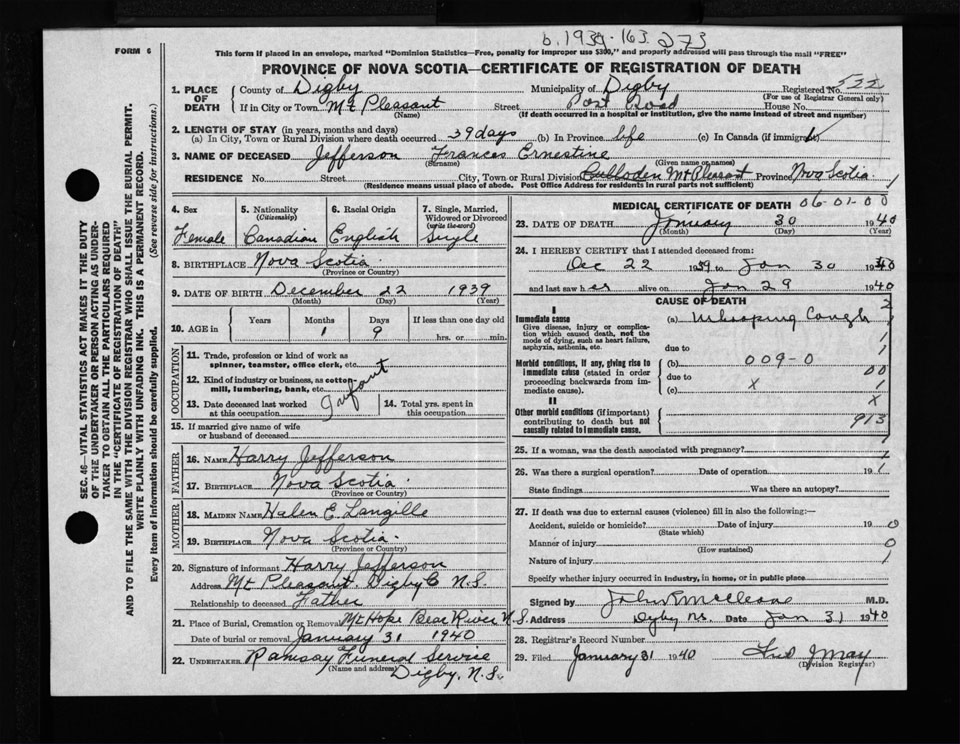 b. 1939-163273
FORM 6
This form if placed in an envelope, marked "Dominion Statistics—Free, penalty for improper use $300," and properly addressed will pass through the mail "FREE"
PROVINCE OF NOVA SCOTIA—CERTIFICATE OF REGISTRATION OF DEATH
1. PLACE OF DEATH
County of Digby
Municipality of Digby
Registered No.
(For use of Registrar General only)
If in City or Town Mt Pleasant Street Post Road House No.
(Name) (If death occurred in a hospital or institution, give the name instead of street and number)
2. LENGTH OF STAY (in years, months and days)
(a) In City, Town or Rural Division where death occurred 39 days (b) In Province life (c) In Canada (if immigrant)
3. NAME OF DECEASED Jefferson Frances Ernestine
(Surname) (Given name or names)
RESIDENCE No. Street City, Town or Rural Division Culloden Mt Pleasant Province Nova Scotia
(Residence means usual place of abode. Post Office Address for residents in rural parts not sufficient)
4. Sex
Female
5. Nationality (Citizenship)
Canadian
6. Racial Origin
English
7. Single, Married, Widowed or Divorced (write the word)
Single
8. BIRTHPLACE Nova Scotia
(Province or Country)
9. DATE OF BIRTH December 22 1939
(Month) (Day) (Year)
10. AGE in
Years Months Days If less than one day old
1 9 hrs. or min.
OCCUPATION
11. Trade, profession or kind of work as spinner, teamster, office clerk, etc.
12. Kind of industry or business, as cotton mill, lumbering, bank, etc.
Infant
13. Date deceased last worked at this occupation
14. Total yrs. spent in this occupation
15. If married give name of wife or husband of deceased
FATHER
16. NAME Harry Jefferson
17. BIRTHPLACE Nova Scotia
(Province or Country)
MOTHER
18. MAIDEN NAME Halen E Langille
19. BIRTHPLACE Nova Scotia
(Province or Country)
20. Signature of informant Harry Jefferson
Address Mt Pleasant. Digby C N.S.
Relationship to deceased Father
21. Place of Burial, Cremation or Removal Mt Hope Bear River N.S.
Date of burial or removal January 31 1940
22. UNDERTAKER Ramsay Funeral Service
(Name and address)
Digby, N.S.
MEDICAL CERTIFICATE OF DEATH 06-01-00
23. DATE OF DEATH January 30 1940
(Month) (Day) (Year)
24. I HEREBY CERTIFY that I attended deceased from:
Dec 22 1939 to Jan 30 1940
and last saw her alive on Jan 29 1940
CAUSE OF DEATH
I
Immediate cause
Give disease, injury or complication which caused death, not the mode of dying, such as heart failure, asphyxia, asthenia, etc.
(a) Whooping Cough
due to
Morbid conditions, if any, giving rise to immediate cause (stated in order proceeding backwards from immediate cause).
(b) 009-0
due to
(c)
II
Other morbid conditions (if important) contributing to death but not causally related to immediate cause.
913
25. If a woman, was the death associated with pregnancy?
26. Was there a surgical operation? Date of operation 19
State findings Was there an autopsy?
27. If death was due to external causes (violence) fill in also the following:—
Accident, suicide or homicide? Date of injury 19
(State which)
Manner of injury
(How sustained)
Nature of injury
Specify whether injury occurred in industry, in home, or in public place
Signed by M.D.
Address Digby NS. Date Jan 31 1940
28. Registrar's Record Number
29. Filed January 31 1940
(Division Registrar)
SEC. 46—VITAL STATISTICS ACT MAKES IT THE DUTY
OF THE UNDERTAKER OR PERSON ACTING AS UNDER-
TAKER TO OBTAIN ALL THE PARTICULARS REQUIRED
IN THE "CERTIFICATE OF REGISTRATION OF DEATH"
AND TO FILE THE SAME WITH THE DIVISION REGISTRAR WHO SHALL ISSUE THE BURIAL PERMIT.
WRITE PLAINLY WITH UNFADING INK. THIS IS A PERMANENT RECORD.
Every item of information should be carefully supplied. (See reverse side for instructions.)